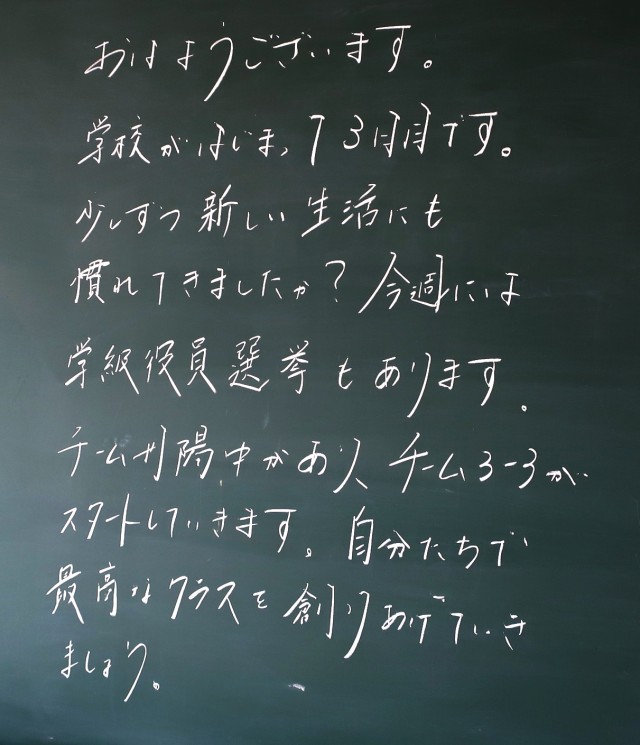 おはようございます。
学校がはじまって3日目です。
少しずつ新しい生活にも
慣れてきましたか?今週には
学級役員選挙もあります。
チーム 陽中があり、チーム3-3が
スタートしていきます。自分たちで
最高なクラスを創りあげていき
ましょう。